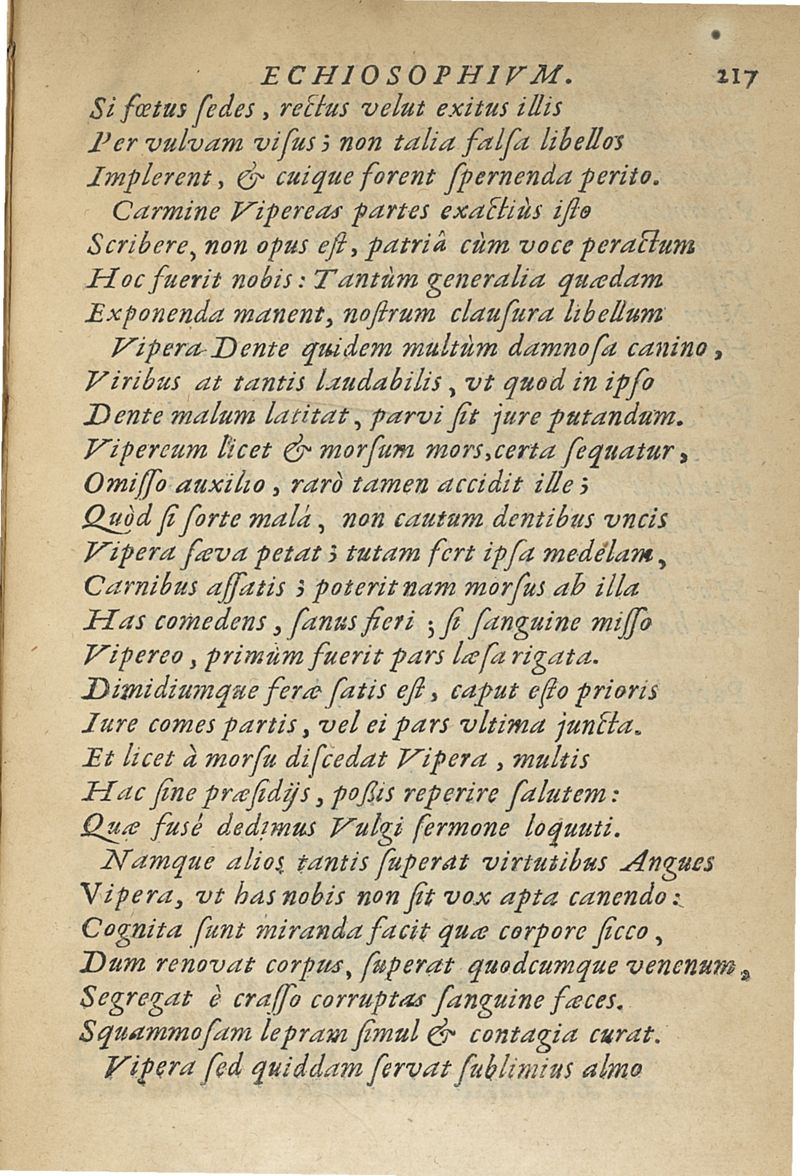 ECHIOSOPHIVM. 217
Si fœtus ſedes, rectus velut exitus illis
Per vulvam viſus; non talia falſa libellos
Implerent, & cuique forent ſpernenda perito.
Carmine Vipereas partes exactiùs iſto
Scribere, non opus eſt, patriâ cùm voce peractum
Hoc fuerit nobis: Tantùm generalia quædam
Exponenda manent, noſtrum clauſura libellum
Vipera Dente quidem multùm damnoſa canino,
Viribus at tantis laudabilis, vt quod in ipſo
Dente malum latitat, parvi ſit jure putandum.
Vipereum licet & morſum mors, certa ſequatur,
Omiſſo auxilio, rarò tamen accidit ille;
Quòd ſi ſorte malá, non cautum dentibus vncis
Vipera ſæva petat; tutam fert ipſa medélam,
Carnibus aſſatis; poterit nam morſus ab illa
Has comedens, ſanus fieri; ſi ſanguine miſſo
Vipereo, primùm fuerit pars læſa rigata.
Dimidiumque feræ ſatis eſt, caput eſto prioris
Iure comes partis, vel ei pars vltima juncta.
Et licet à morſu diſcedat Vipera, multis
Hac ſine præſidijs, poßis reperire ſalutem:
Quæ fusé dedimus Vulgi ſermone loquuti.
Namque alios tantis ſuperat virtutibus Angues
Vipera, vt has nobis non ſit vox apta canendo:
Cognita ſunt miranda facit quæ corpore ſicco,
Dum renovat corpus, ſuperat quodcumque venenum,
Segregat è craſſo corruptas ſanguine fæces.
Squammoſam lepram ſimul & contagia curat.
Vipera ſed quiddam ſervat ſublimius almo